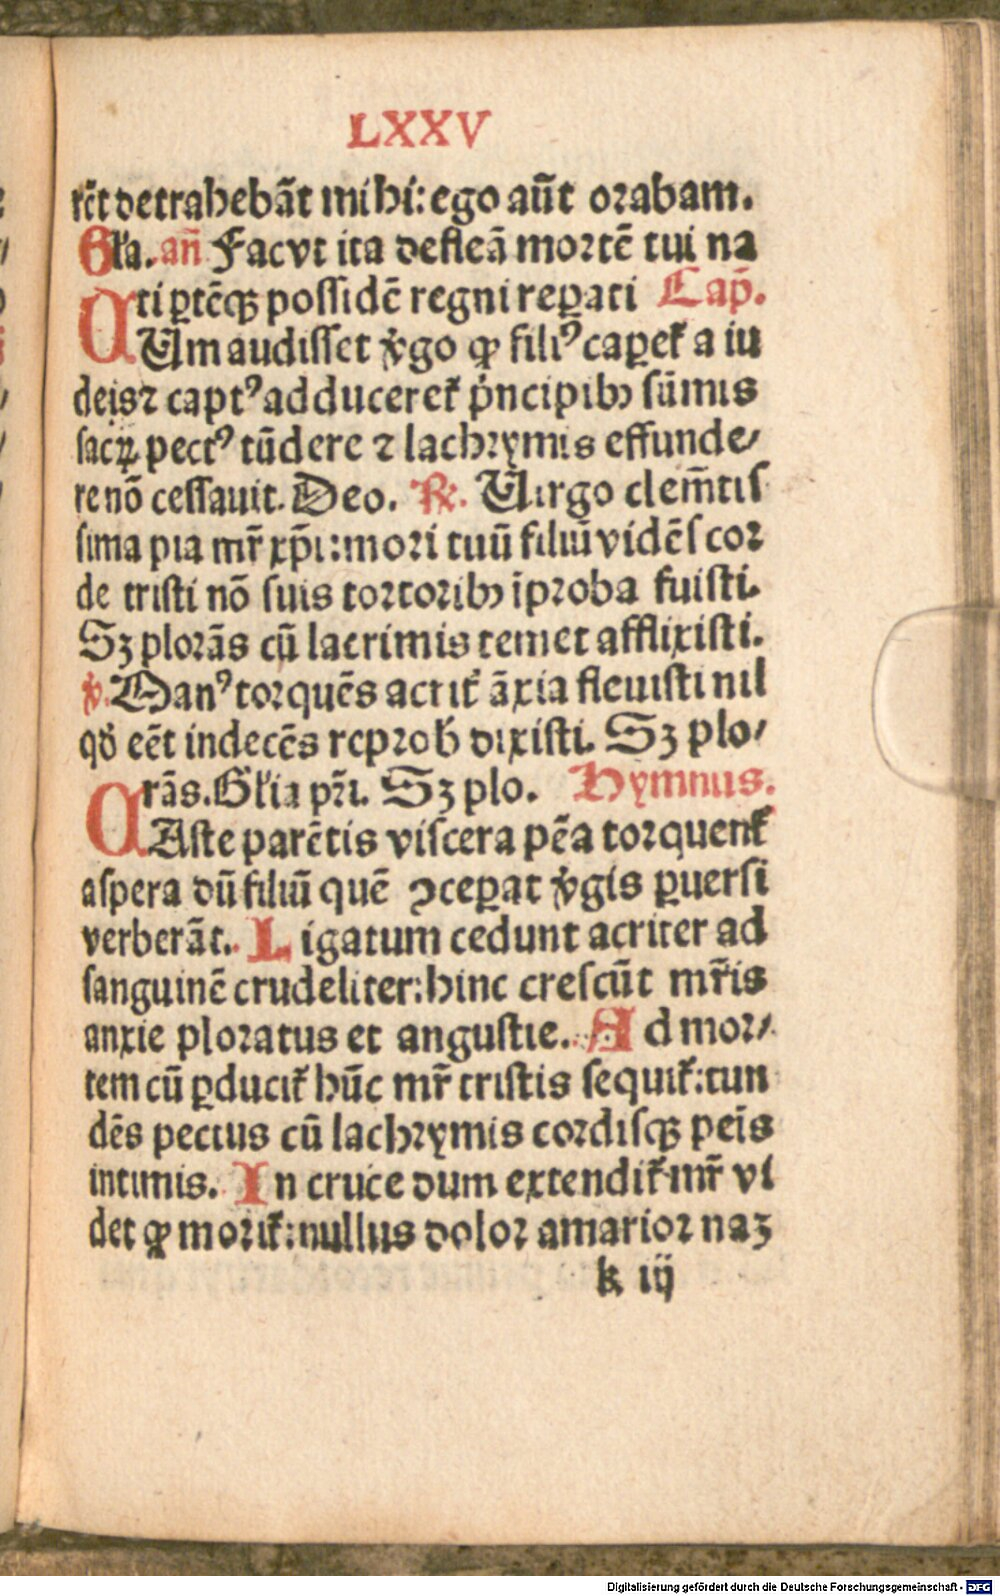 LXXV
rēt detrahebāt mihi: ego aūt orabam.
Gl'a. añ Fac vt ita defleā mortē tui na
ti ꝑtēqꝫ possidē regni reꝑati Cap̄.
CUm audisset v̇go ꝙ filiꝰ caꝑet᷑ a iu
deis ⁊ captꝰ adduceret᷑ pͥncipibꝫ sūmis
sacꝝ pectꝰ tūdere ⁊ lachrymis effunde/
re nō cessauit. Deo. ℟. Uirgo clemētis
sima pia mr̄ xp̄i: mori tuū filiū vidēs cor
de tristi nō suis tortoribꝫ īproba fuisti.
Sꝫ plorās cū lacrimis temet afflixisti.
℣. Manꝰ torquēs acrit᷑ āxia fleuisti nil
qd̄ eēt indecēs reprob̄ dixisti. Sꝫ plo/
rās. Gl'ia pr̄i. Sꝫ plo. Hymnus.
CAste parētis viscera pēa torquent᷑
aspera dū filiū quē ꝯceꝑat v̇gis ꝑuersi
verberāt. Ligatum cedunt acriter ad
sanguinē crudeliter: hinc crescūt mr̄is
anxie ploratus et angustie. Ad mor/
tem cū ꝑducit᷑ hūc mr̄ tristis sequit᷑: tun
dēs pectus cū lachrymis cordisqꝫ peīs
intimis. In cruce dum extendit᷑ mr̄ vi
det ꝙ morit᷑: nullus dolor amarior naꝫ
k iij
Digitalisierung gefördert durch die Deutsche Forschungsgemeinschaft - DFG